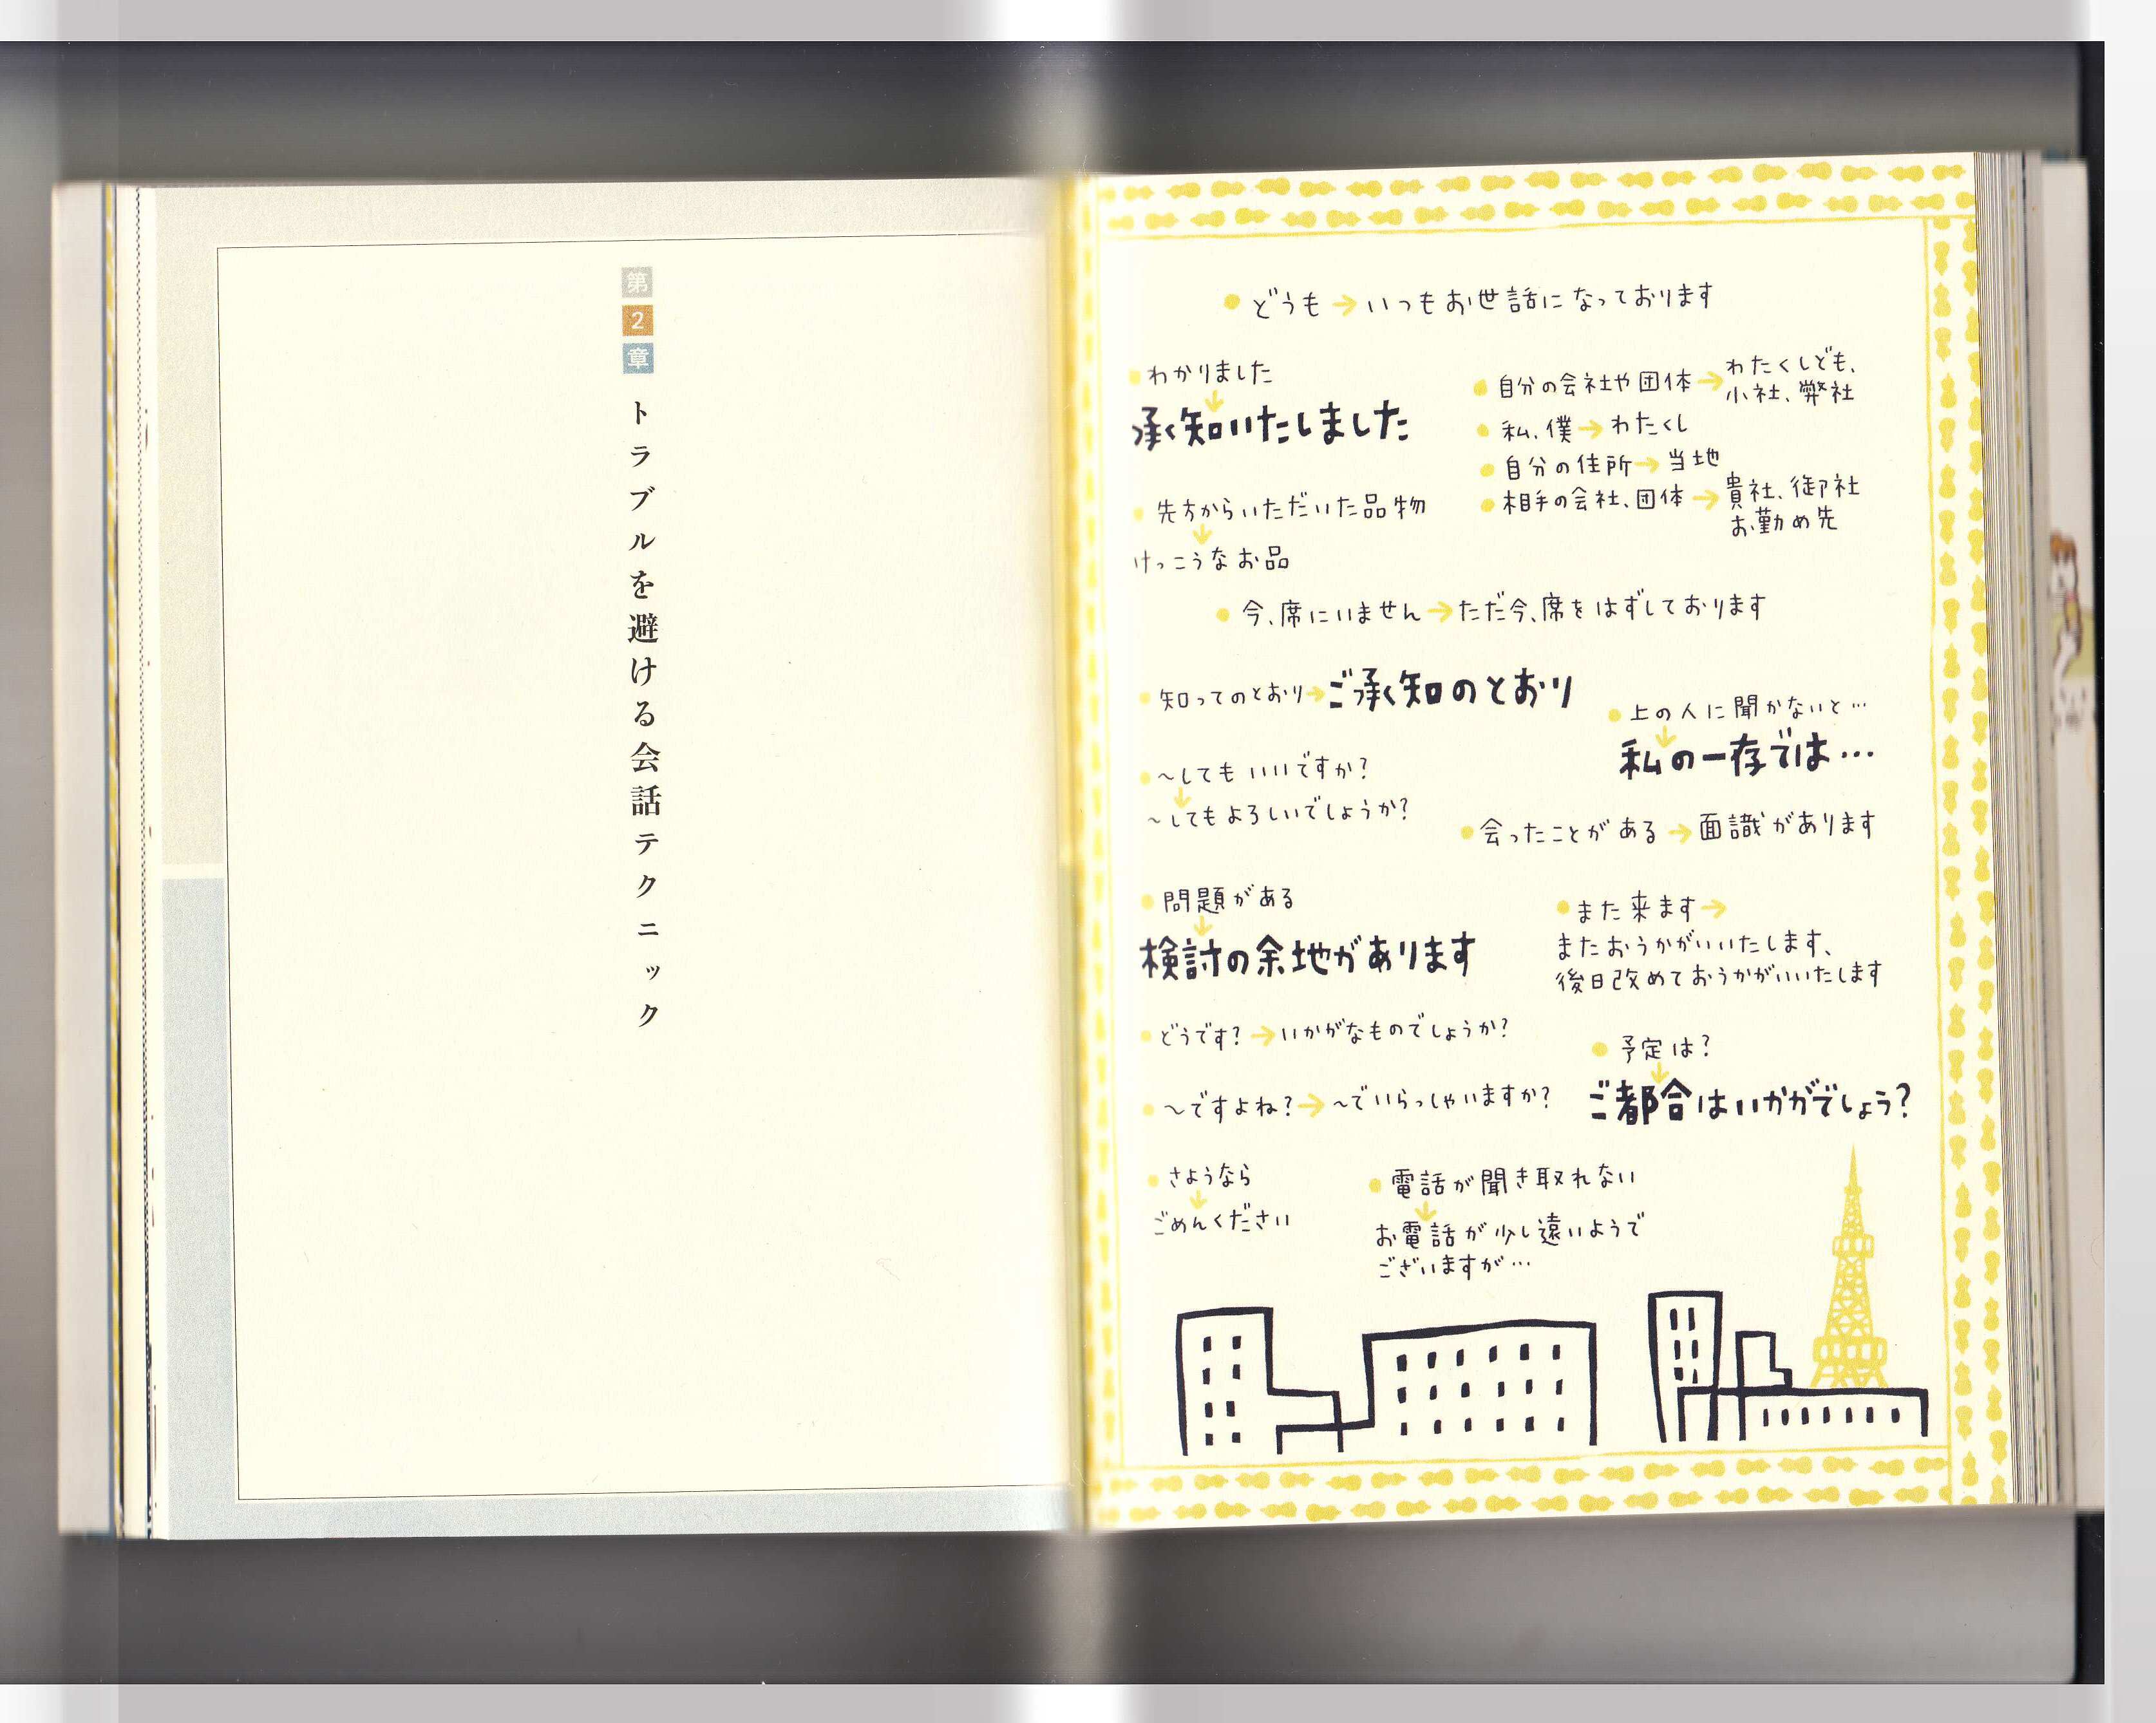 第2章
トラブルを避ける会話テクニック
どうも→いつもお世話になっております
わかりました
↓
承知いたしました
自分の会社や団体→わたくしども、
小社、弊社
私、僕→わたくし
自分の住所→当地
相手の会社、団体→貴社、御社
お勤め先
先方からいただいた品物
↓
けっこうなお品
今、席にいません→ただ今、席をはずしております
知ってのとおり→ご承知のとおり
上の人に聞かないと…
↓
私の一存では…
〜してもいいですか?
↓
〜してもよろしいでしょうか?
会ったことがある→面識があります
問題がある
↓
検討の余地があります
また来ます→
またおうかがいいたします、
後日改めておうかがいいたします
どうです?→いかがなものでしょうか?
予定は?
↓
ご都合はいかがでしょう?
〜ですよね?→〜でいらっしゃいますか?
さようなら
↓
ごめんください
電話が聞き取れない
↓
お電話が少し遠いようで
ございますが…